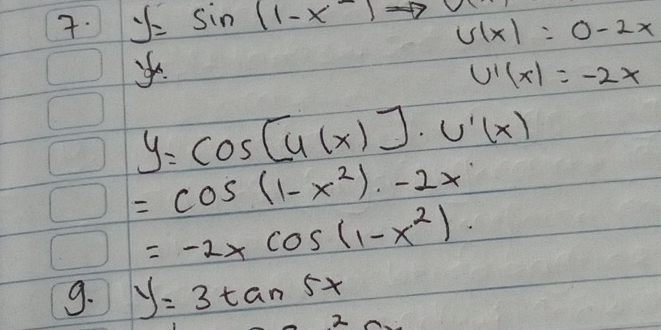 7. y = sin (1-x
u(x) = 0-2x
y
u'(x) = -2x
y = cos[u(x)]. u'(x)
= cos (1-x²). -2x
= -2x cos (1-x²).
9. y = 3 tan 5x